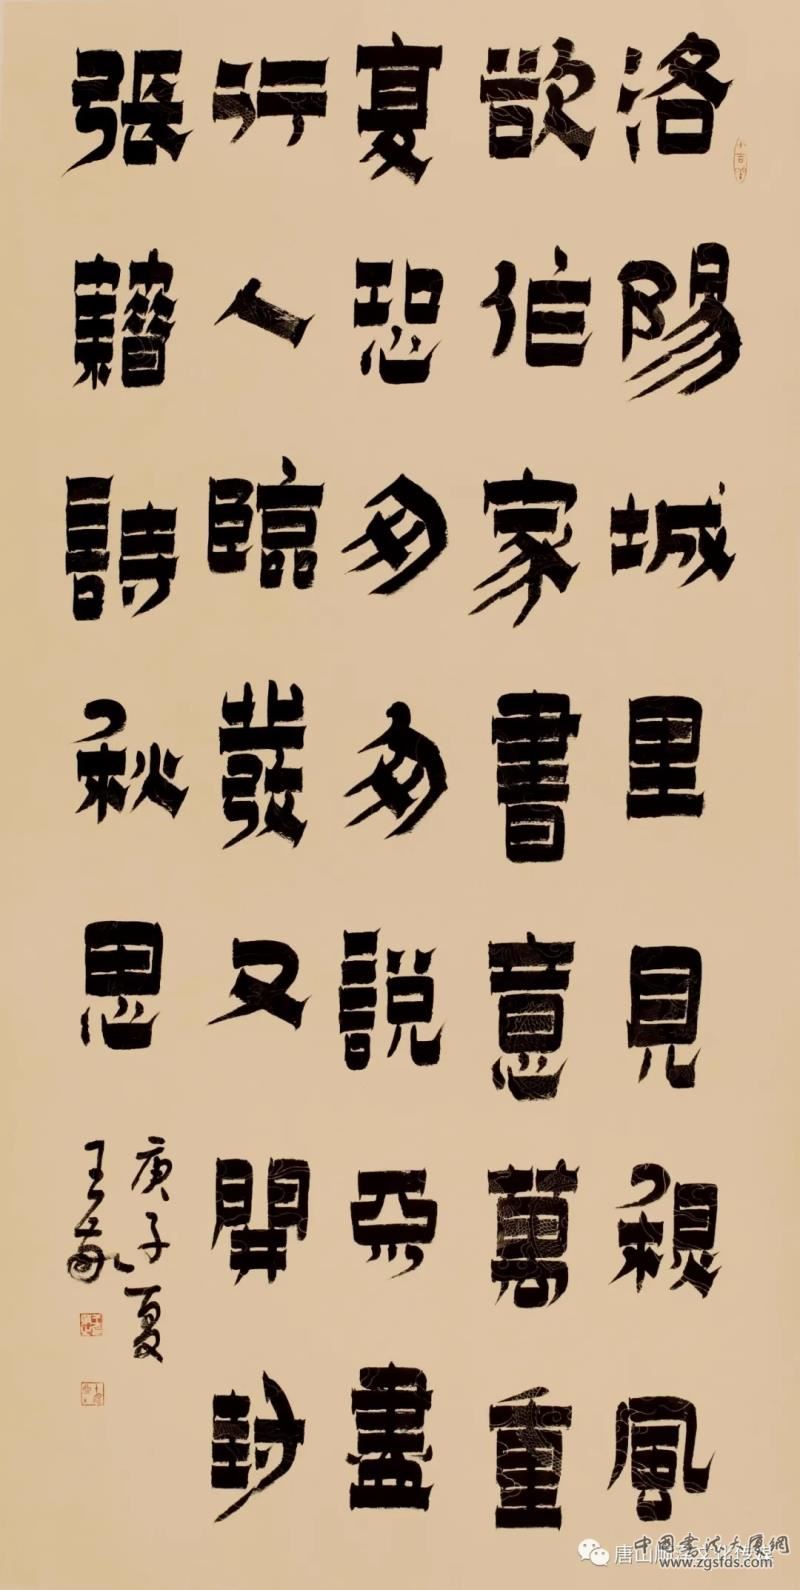 洛陽城里見穐風
欲作家書意萬重
复恐匆匆説不盡
行人臨發又開封
張籍詩秋思
庚子夏
王
唐山
中國書法大厦網
www.zgsfds.com